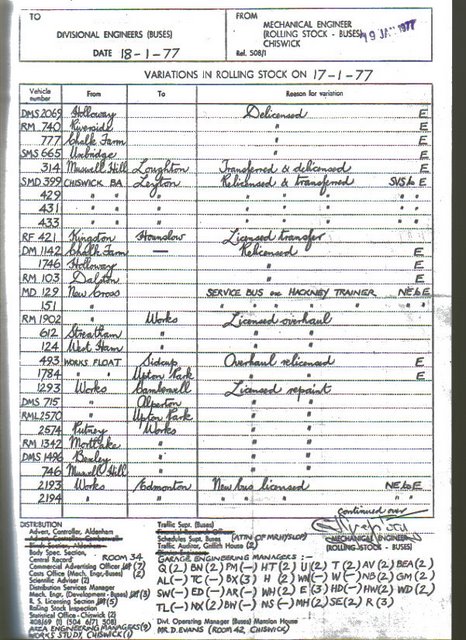 TO
DIVISIONAL ENGINEERS (BUSES)
DATE 18-1-77
FROM
MECHANICAL ENGINEER
(ROLLING STOCK - BUSES)
CHISWICK
Ref. 508/1
19 JAN 1977
VARIATIONS IN ROLLING STOCK ON 17-1-77
Vehicle number From To Reason for variation
DMS 2069 Holloway Delicensed E
RM 740 Riverside " E
777 Chalk Farm " E
SMS 665 Uxbridge " E
314 Muswell Hill Loughton Transferred & delicensed E
SMD 399 CHISWICK BA Leyton Relicensed & transferred SVS to E
429 " " " " " " " "
431 " " " " " " " "
433 " " " " " " " "
RF 421 Kingston Hounslow Licensed transfer
DM 1142 Chalk Farm — Relicensed E
1746 Holloway " E
RM 103 Dalston " E
MD 129 New Cross SERVICE BUS one HACKNEY TRAINER NE to E
151 " " " " " " " " "
RM 1902 " Works Licensed overhaul
612 Streatham " " "
124 West Ham " " "
493 WORKS FLOAT Sidcup Overhaul relicensed E
1784 " " Upton Park " " E
1293 Works Camberwell Licensed repaint
DMS 715 " Alperton " "
RML 2570 " Upton Park " "
2574 Putney Works " "
RM 1342 Mortlake " " "
DMS 1496 Bexley " " "
746 Muswell Hill " " "
2193 Works Edmonton New bus licensed NE to E
2194 " " " " " " "
continued over
MECHANICAL ENGINEER
(ROLLING STOCK - BUSES)
DISTRIBUTION
Advert. Controller, Aldenham
Body Spec. Section,
Central Record ROOM 34
Commercial Advertising Officer (7)
Costs Office (Mech. Engr.-Buses) (2)
Scientific Adviser (2)
Distribution Service Manager
Mech. Engr. (Development - Buses) (3)
R. S. Licensing Section (5)
Rolling Stock Inspection
Statistical Office (2)
AREA ENGINEERING MANAGERS (9)
WORKS STUDY, CHISWICK (1)
Traffic Supt. (Buses)
Schedules Supt. Buses (ATTN OF MR HYSLOP)
Traffic Auditor, Griffith House (2)
GARAGE ENGINEERING MANAGERS :-
Divl. Operating Manager (Buses) Mansion House
MR. D. EVANS (ROOM 42, CHISWICK)